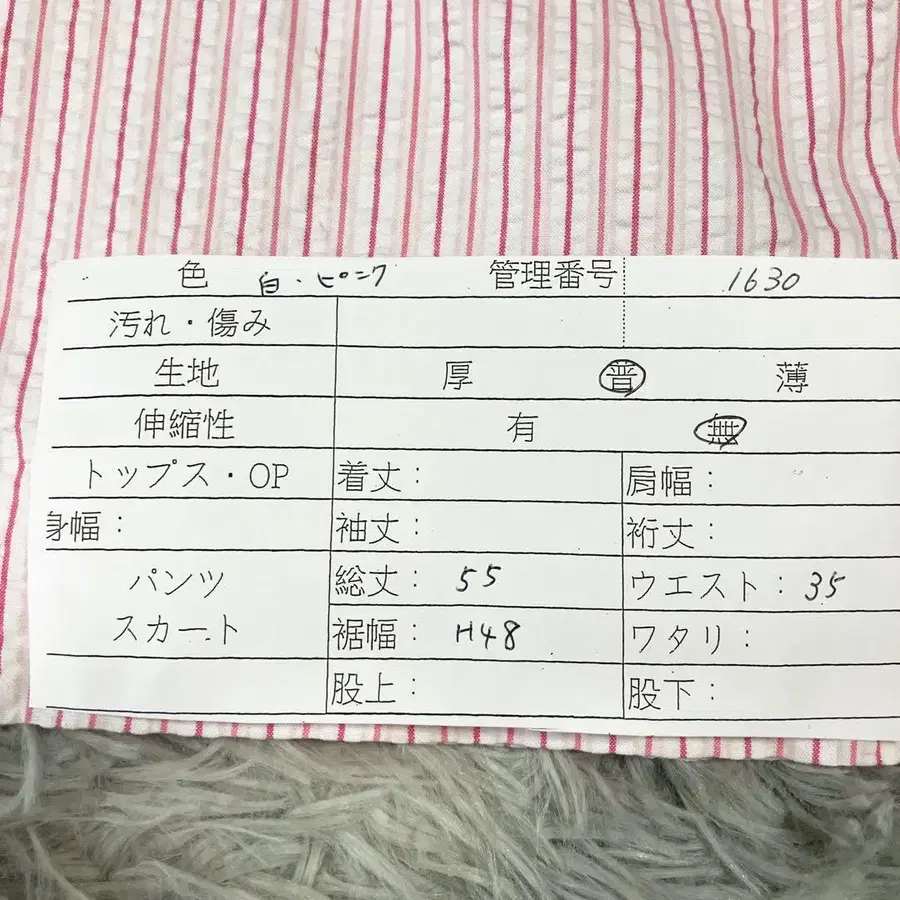 色 白・ピンク 管理番号 1630
汚れ・傷み
生地 厚 普 薄
伸縮性 有 無
トップス・OP 着丈: 肩幅:
身幅: 袖丈: 裄丈:
パンツ 総丈: 55 ウエスト: 35
スカート 裾幅: H48 ワタリ:
股上: 股下: